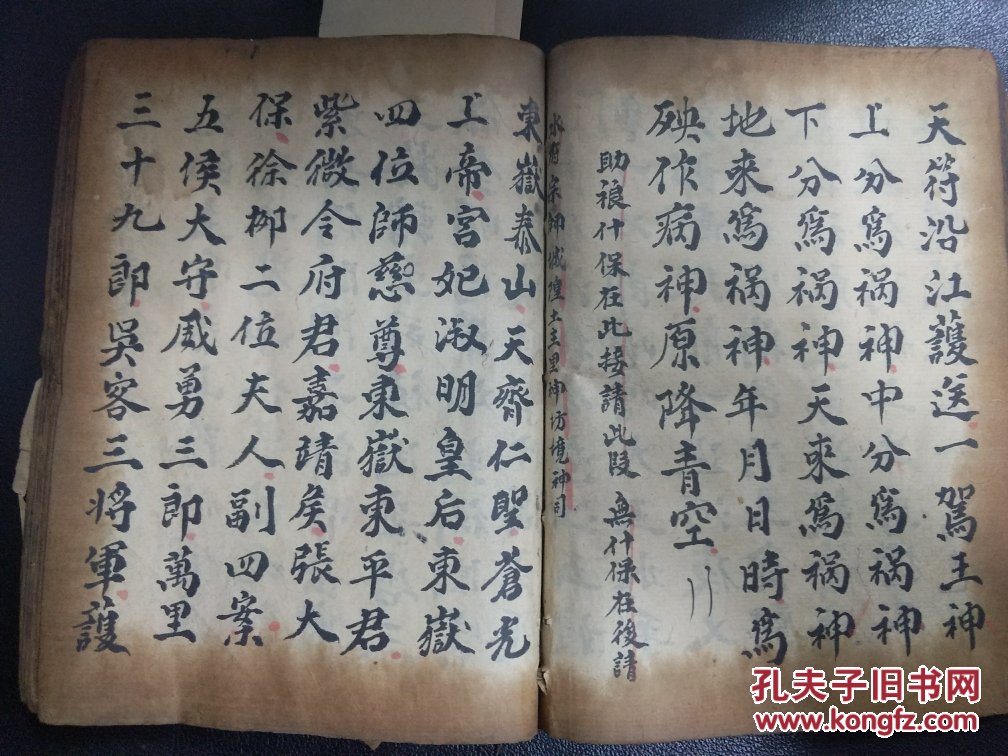 天符沿江護送一駕主神
上分為祸神中分為祸神
下分為祸神天來為祸神
地來為祸神年月日時為
殃作病神原降青空
助禳什保在此接請此段 無什保在後請
水府宗師城隍土主里神坊境神司
東嶽泰山天齊仁聖蒼光
上帝宮妃淑明皇后東嶽
四位師慈尊東嶽東平君
紫微令府君嘉靖侯張大
保徐柳二位夫人副四案
五侯大守威勇三郎萬里
三十九郎吳客三将軍護
孔夫子旧书网
www.kongfz.com